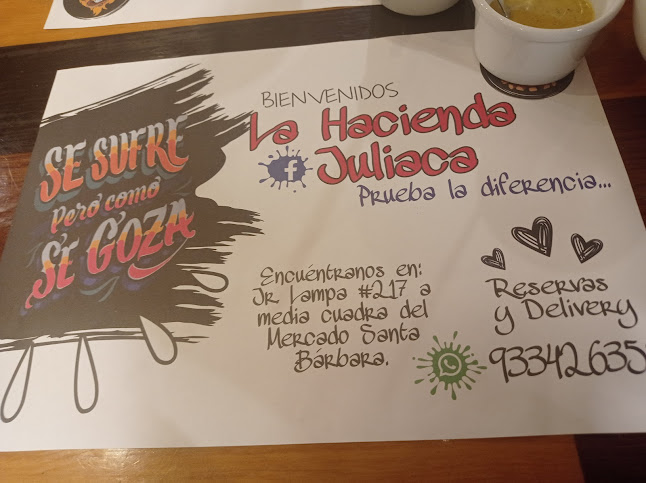 SE SUFRE
Pero como
SE GOZA
BIENVENIDOS
La Hacienda
Juliaca
Prueba la diferencia...
Encuéntranos en:
Jr Lampa #217 a
media cuadra del
Mercado Santa
Bárbara.
Reservas
y Delivery
93342635